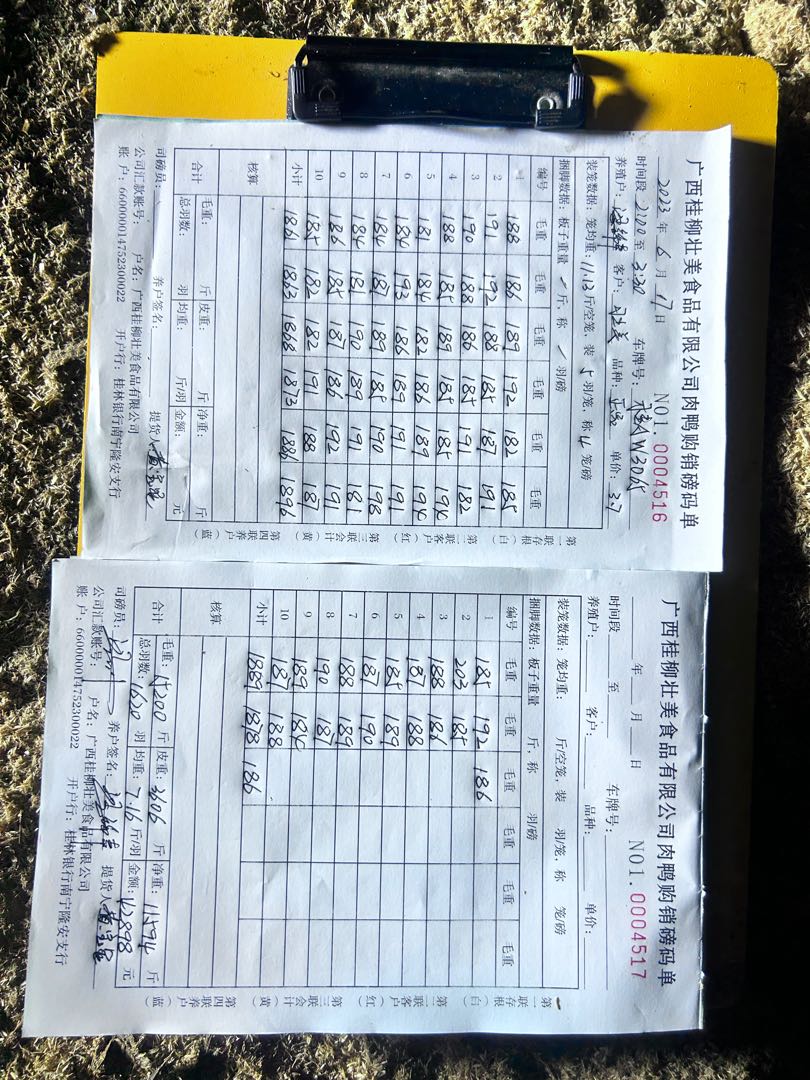 广西桂柳壮美食品有限公司肉鸭购销磅码单
NO1. 0004516
2023 年 6 月 17 日
时间段 21:00 至 3:30 车牌号: W3065
养殖户: 客户: 品种: 单价: 3.7
装笼数据: 笼均重: 11.13 斤/空笼, 装 5 羽/笼, 称 4 笼/磅
捆脚数据: 板子重量 / 斤, 称 / 羽/磅
编号 毛重 毛重 毛重 毛重 毛重 毛重
1 188 186 189 192 182 185
2 191 192 188 185 187 191
3 190 188 186 185 191 182
4 188 185 189 185 185 194
5 181 184 182 186 189 194
6 184 193 186 189 191 191
7 184 187 189 185 190 198
8 184 181 190 189 191 181
9 186 185 187 186 192 191
10 185 182 182 191 188 187
小计 1861 1863 1868 1873 1886 1894
核算
合计 毛重: 斤 皮重: 斤 净重: 斤
总羽数: 羽 均重: 斤/羽 金额: 元
司磅员: 养户签名: 提货人:
公司汇款账号: 户名: 广西桂柳壮美食品有限公司
账 户: 660000014752300022 开户行: 桂林银行南宁隆安支行
第一联存根(白) 第二联客户(红) 第三联会计(黄) 第四联养户(蓝)
广西桂柳壮美食品有限公司肉鸭购销磅码单
NO1. 0004517
年 月 日
时间段 至 车牌号:
养殖户: 客户: 品种: 单价:
装笼数据: 笼均重: 斤/空笼, 装 羽/笼, 称 笼/磅
捆脚数据: 板子重量 斤, 称 羽/磅
编号 毛重 毛重 毛重 毛重 毛重 毛重
1 185 192 186
2 203 185
3 188 186
4 187 188
5 185 189
6 187 190
7 188 189
8 190 187
9 189 184
10 187 188
小计 1889 1878 186
核算
合计 毛重: 15200 斤 皮重: 3606 斤 净重: 11594 斤
总羽数: 1620 羽 均重: 7.16 斤/羽 金额: 42898 元
司磅员: 养户签名: 提货人:
公司汇款账号: 户名: 广西桂柳壮美食品有限公司
账 户: 660000014752300022 开户行: 桂林银行南宁隆安支行
第一联存根(白) 第二联客户(红) 第三联会计(黄) 第四联养户(蓝)